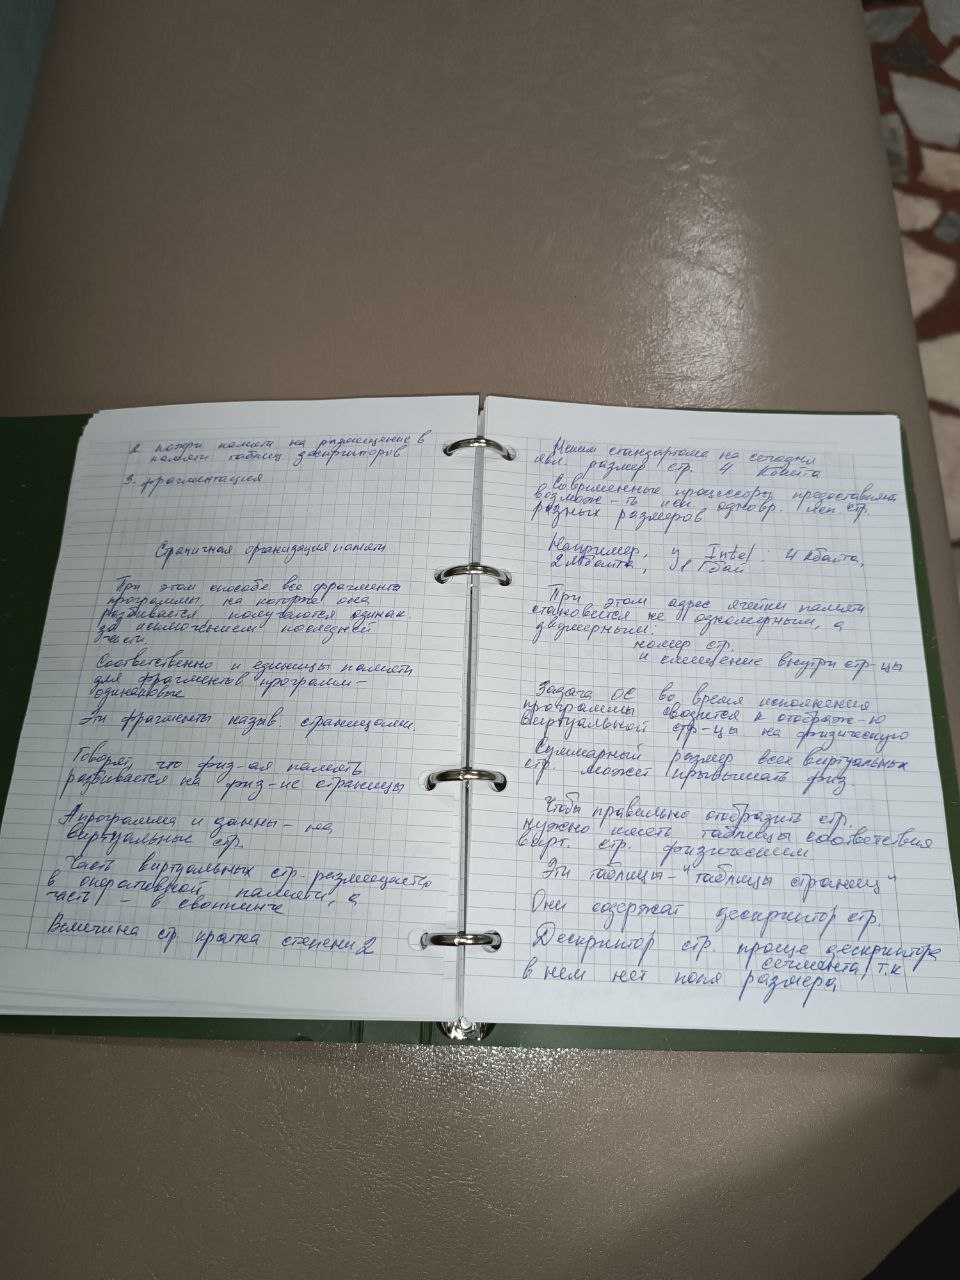 2. потери памяти на размещение в
памяти таблиц дескрипторов
3. фрагментация
Страничная организация памяти
При этом способе все фрагменты
программы, на которые она
разбивается получаются одинак.
за исключением последней
части.
Соответственно и единицы памяти
для фрагментов программ -
одинаковые
Эти фрагменты назыв. страницами.
Говорят, что физ-ая память
разбивается на физ-ие страницы
А программа и данны - на
виртуальные стр.
Часть виртуальных стр. размещается
в оперативной памяти, а
часть - в своппинге
Величина стр. кратка степени 2
стандартома на сегодня
явл. размер стр. 4 Кбайта
Современные процессоры предоставляют
возмож-ть одновр. стр.
разных размеров
Например, у Intel: 4 Кбайта,
2 Мбайта, 1 Гбай
При этом адрес ячейки памяти
становится не одномерным, а
двумерным:
номер стр.
и смещение внутри стр-цы
Задача ОС во время исполнения
программы сводится к отображ-ю
виртуальной стр-цы на физическую
Суммарный размер всех виртуальных
стр. может превышать физ.
Чтобы правильно отобразить стр.
нужно иметь таблицы соответствия
вирт. стр. физическим
Эти таблицы - "таблицы страниц"
Они содержат дескриптор стр.
Дескриптор стр. проще дескриптора
сегмента, т.к
в нем нет поля размера